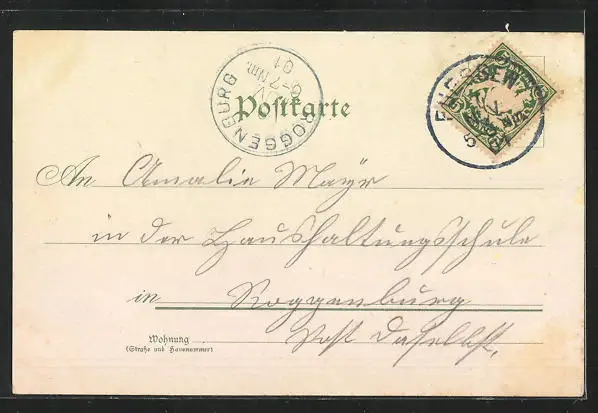 ROGGENBURG
Postkarte
An Amalie Mayr
in der Haushaltungsschule
in Roggenburg
Post daselbst.
Wohnung
(Straße und Hausnummer)